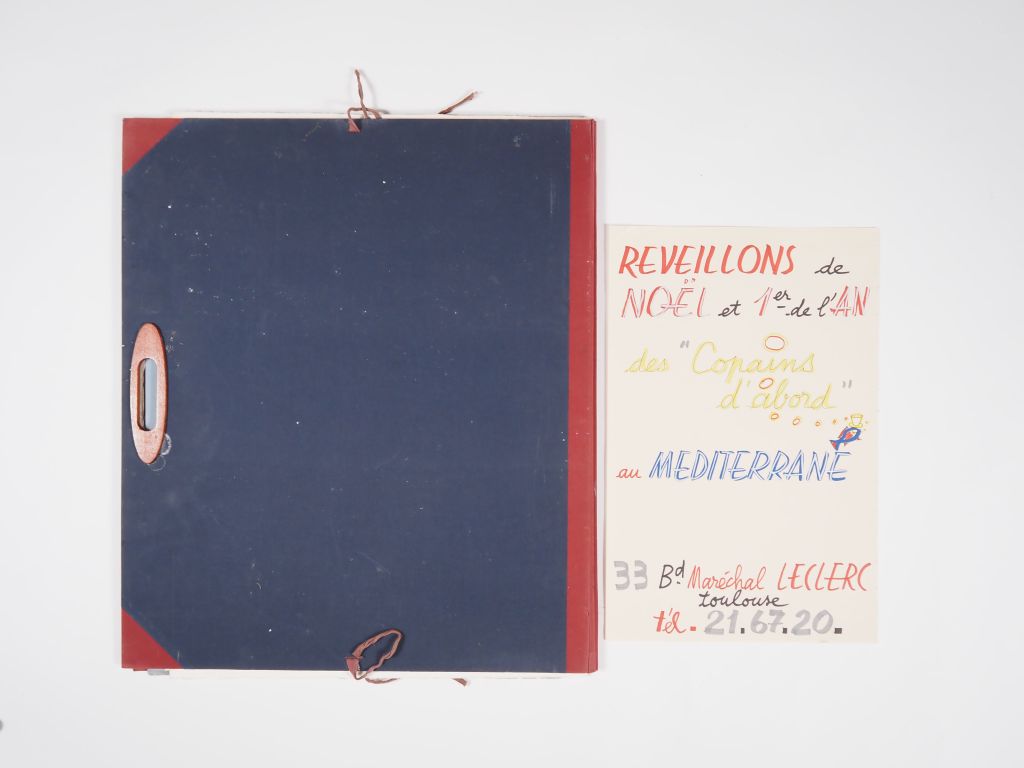 REVEILLONS de
NOËL et 1er de l'AN
des "Copains
d'abord"
au MEDITERRANE
33 Bd. Maréchal LECLERC
toulouse
tél. 21.67.20.